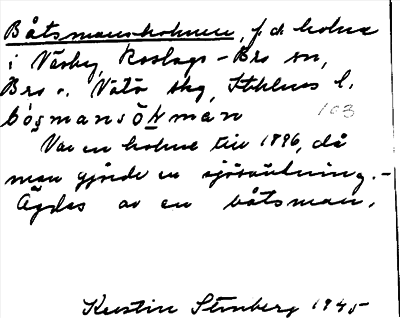 Båtsmansholmen, f.d. holme
i Väsby, Roslags-Bro sn,
Bro o. Vätö skg, Sthlms l.
båsmansö͟l͟man 103
Var en holme till 1896, då
man gjorde en sjösänkning.-
Ägdes av en båtsman.
Kerstin Stenberg 1945